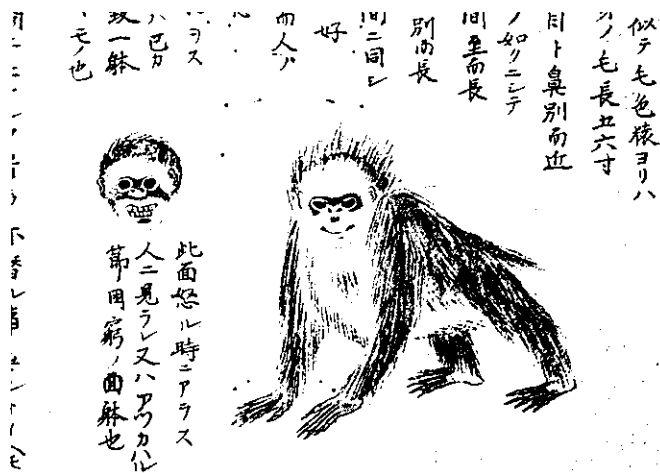 似テ毛色猿ヨリハ
ノ毛長五六寸
目ト鼻別而近
ノ如クニシテ
間至而長
別而長
間ニ同シ
好
而人ハ
ヲス
ハ己カ
致一躰
モノ也
此面怒ル時ニアラス
人ニ見ラレ又ハアツカハレ
節困窮ノ面躰也